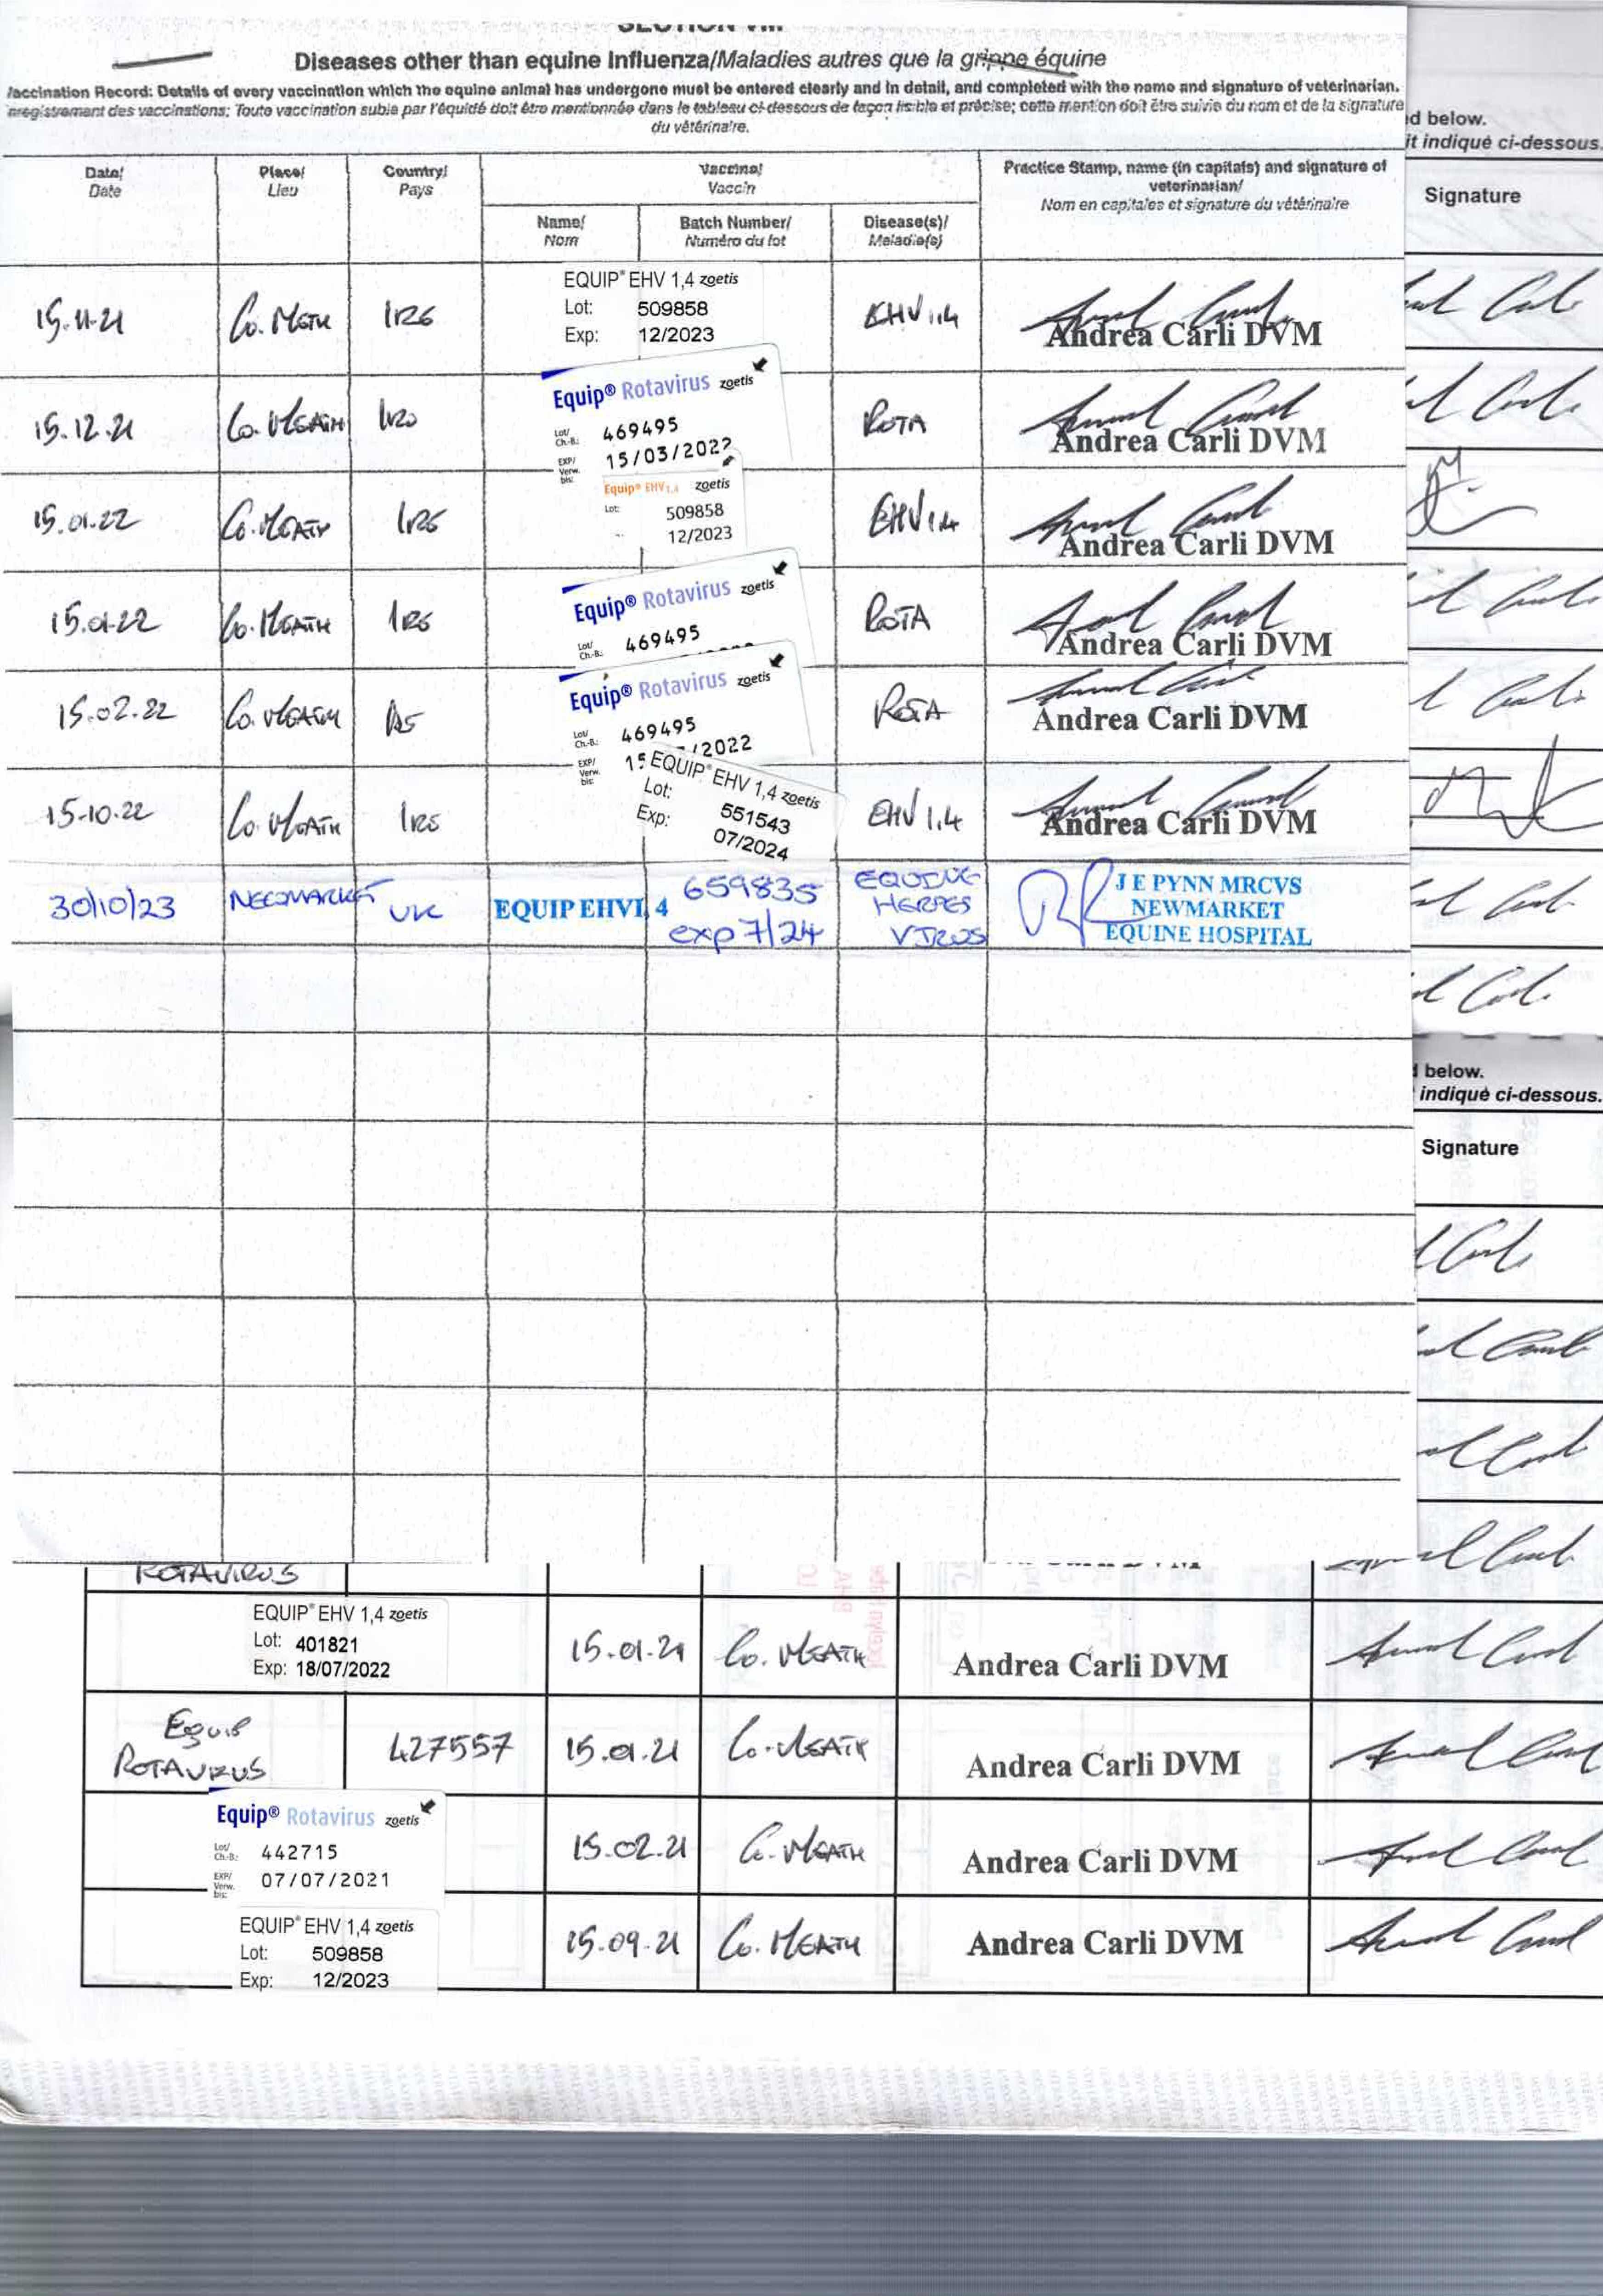 SECTION VIII
Diseases other than equine Influenza/Maladies autres que la grippe équine
Vaccination Record: Details of every vaccination which the equine animal has undergone must be entered clearly and in detail, and completed with the name and signature of veterinarian.
enregistrement des vaccinations: Toute vaccination subie par l'équidé doit être mentionnée dans le tableau ci-dessous de façon lisible et précise; cette mention doit être suivie du nom et de la signature
du vétérinaire.
d below.
it indiqué ci-dessous.
Signature
Date/ Date
Place/ Lieu
Country/ Pays
Vaccine/ Vaccin
Name/ Nom
Batch Number/ Numéro du lot
Disease(s)/ Maladie(s)
Practice Stamp, name (in capitals) and signature of
veterinarian/
Nom en capitales et signature du vétérinaire
15.11.21 Co. Meath IRE EQUIP® EHV 1,4 zoetis Lot: 509858 Exp: 12/2023 EHV 1.4 Andrea Carli DVM
15.12.21 Co. MEATH IRE Equip® Rotavirus zoetis Lot/ Ch.-B.: 469495 EXP/ Verw. bis: 15/03/2022 ROTA Andrea Carli DVM
15.01.22 Co. MEATH IRE Equip® EHV 1,4 zoetis Lot: 509858 12/2023 EHV 1.4 Andrea Carli DVM
15.01.22 Co. MEATH IRE Equip® Rotavirus zoetis Lot/ Ch.-B.: 469495 ROTA Andrea Carli DVM
15.02.22 Co. MEATH IRE Equip® Rotavirus zoetis Lot/ Ch.-B.: 469495 EXP/ Verw. bis: 15 /2022 ROTA Andrea Carli DVM
15.10.22 Co. MEATH IRE EQUIP® EHV 1,4 zoetis Lot: 551543 Exp: 07/2024 EHV 1.4 Andrea Carli DVM
30/10/23 NEWMARKET UK EQUIP EHV1, 4 659835 exp 7/24 EQUINE HERPES VIRUS J E PYNN MRCVS NEWMARKET EQUINE HOSPITAL
below.
indiqué ci-dessous.
Signature
ROTAVIRUS
EQUIP® EHV 1,4 zoetis Lot: 401821 Exp: 18/07/2022 15.01.21 Co. MEATH Andrea Carli DVM
Equip ROTAVIRUS 427557 15.01.21 Co. MEATH Andrea Carli DVM
Equip® Rotavirus zoetis Lot/ Ch.-B.: 442715 EXP/ Verw. bis: 07/07/2021 15.02.21 Co. MEATH Andrea Carli DVM
EQUIP® EHV 1,4 zoetis Lot: 509858 Exp: 12/2023 15.09.21 Co. MEATH Andrea Carli DVM